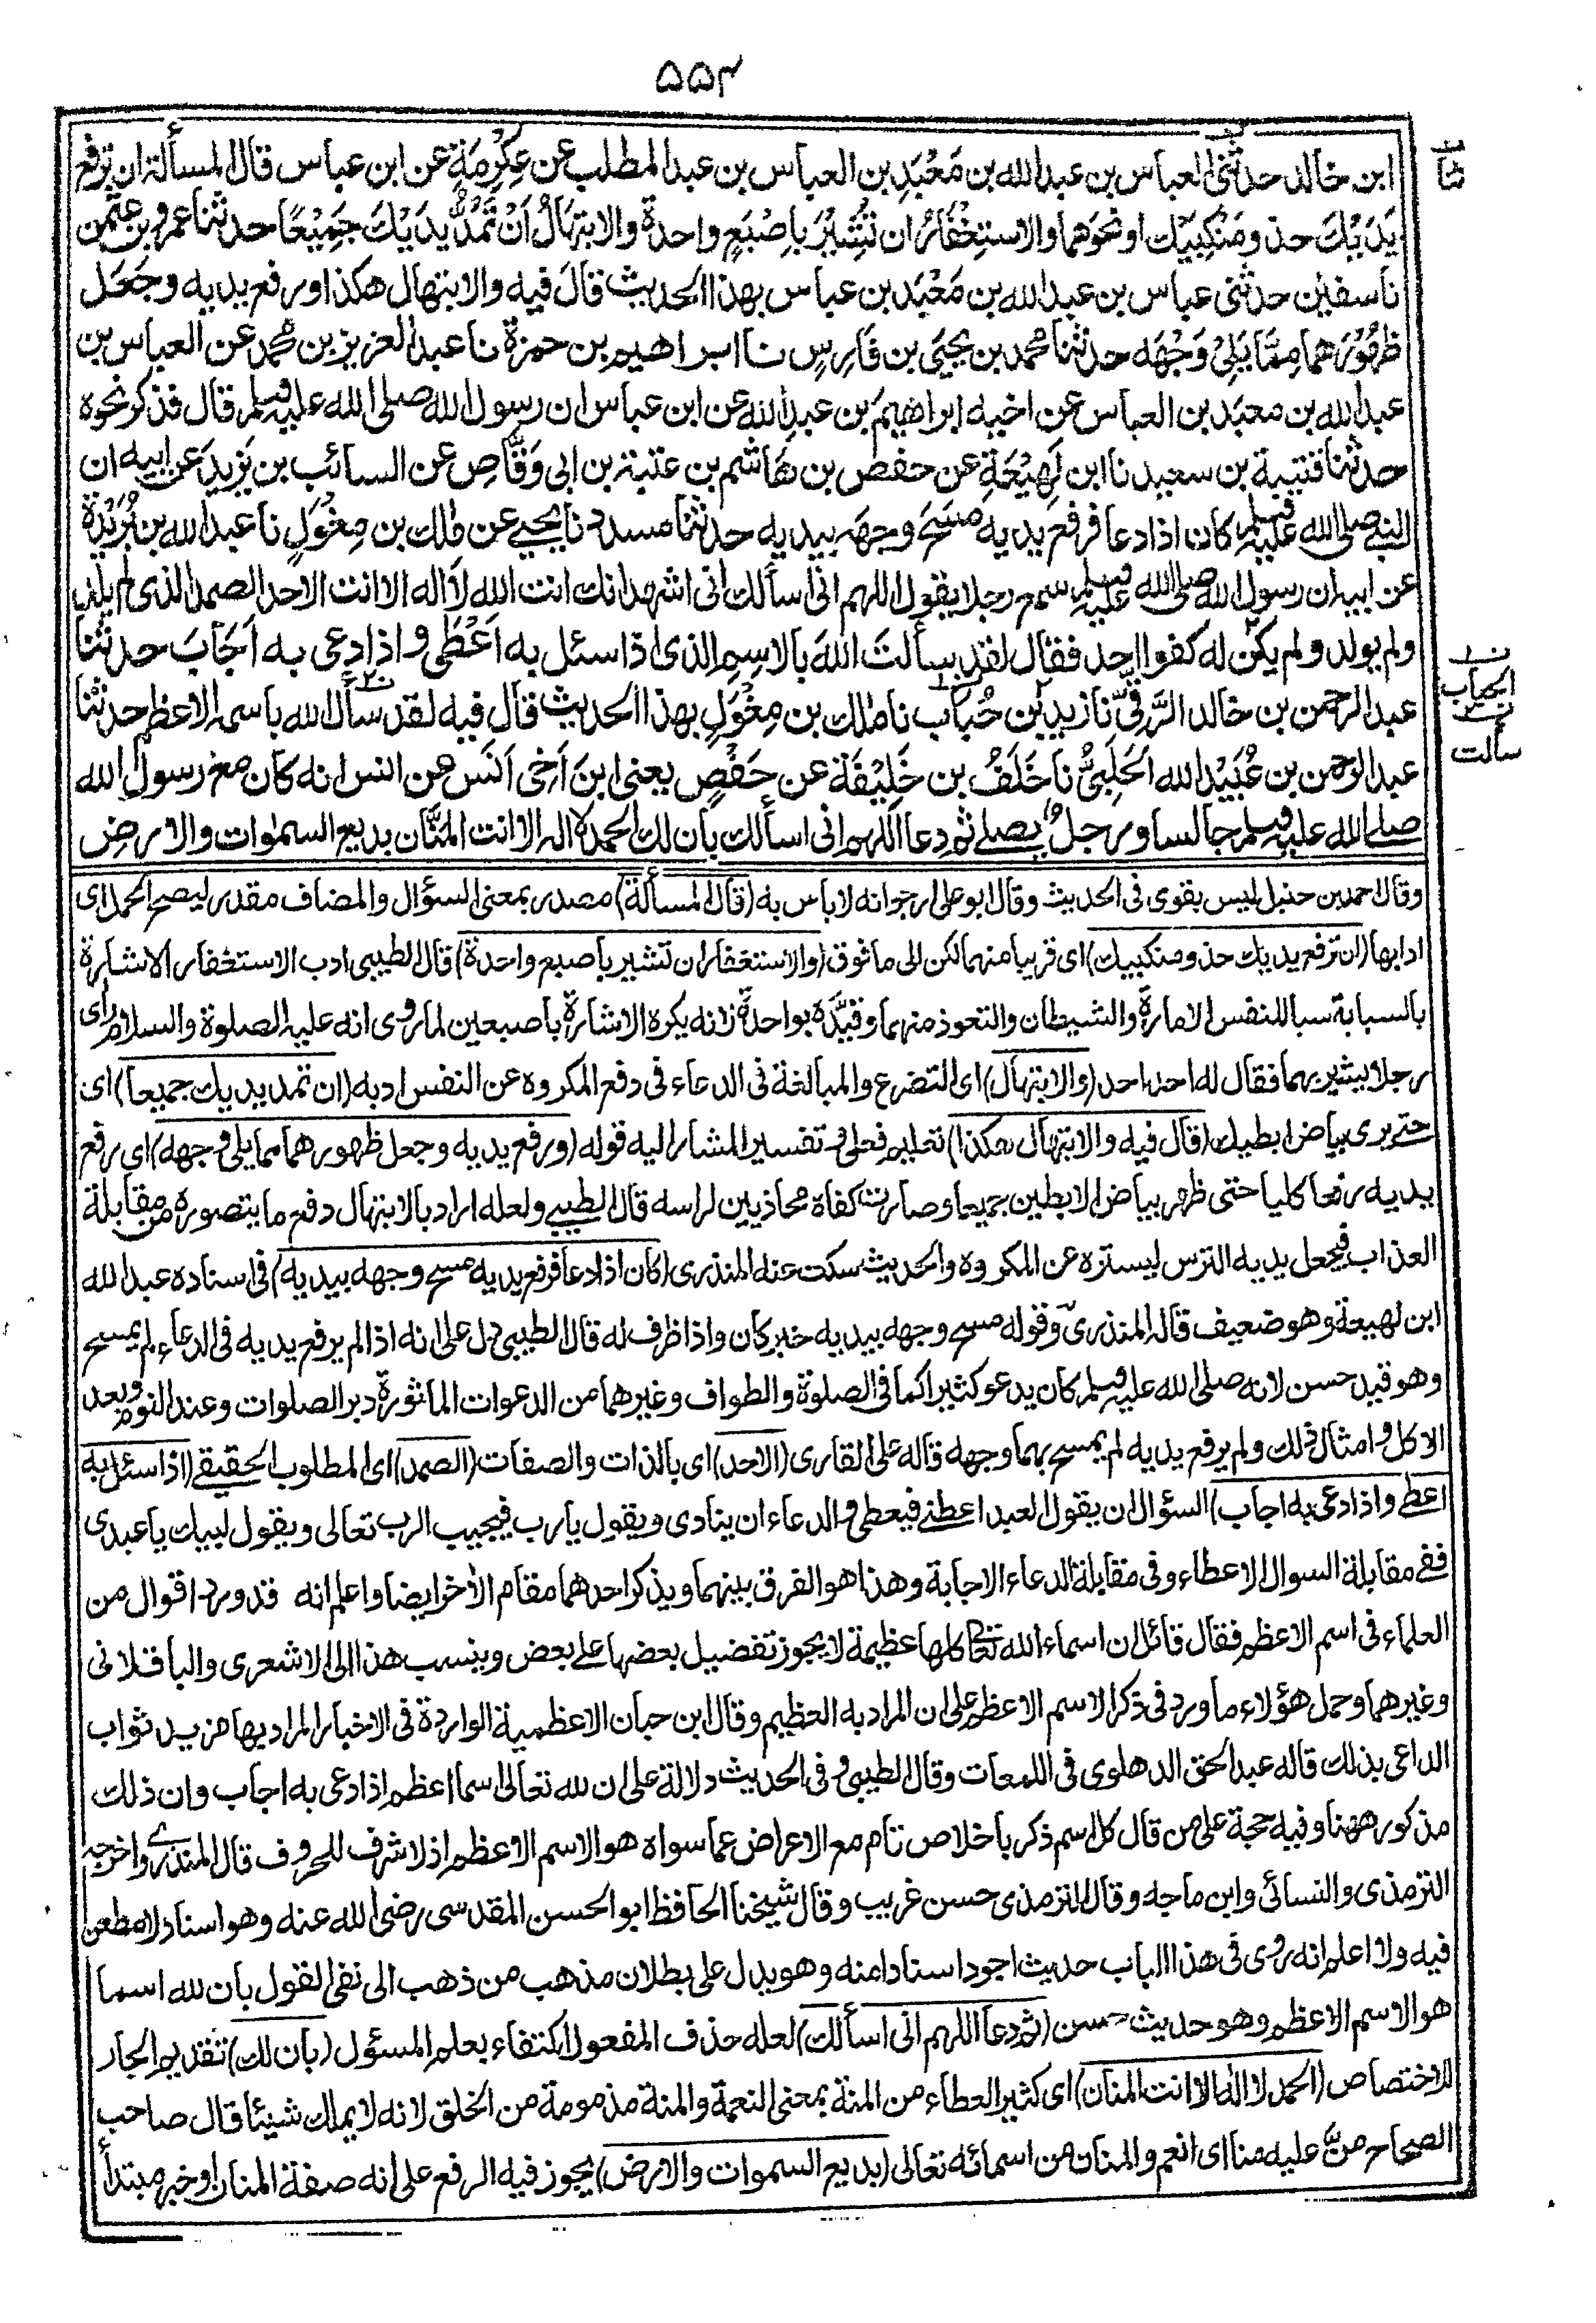 ۵۵۴
ابن خالد حدثنى العباس بن عبد الله بن مَعْبَدِ بن العباس بن عبد المطلب عن عِكْرِمَةِ عن ابن عباس قال المسألة ان ترفع
يَدَيْكَ حذو مَنْكِبَيْك او نحوَهما والاستِغْفَارُ ان تُشِيْرَ بِاِصْبَعٍ واحدة والابتِهَالُ اَنْ تَمُدَّ يدَيْكَ جَمِيْعًا حدثنا عمرو بن عثمٰن
نا سفيٰن حدثنى عباس بن عبد الله بن مَعْبَد بن عباس بهذا الحديث قالَ فيه والابتهال هكذا ورفع يديه وجَعَل
ظُهُوْرَهما مِمَّا يَلِىْ وَجْهَه حدثنا محمد بن يحيَى بن فَارِسٍ نا ابراهيم بن حمزة نا عبد العزيز بن محمد عن العباس بن
عبد الله بن معبَد بن العباس عن اخيه ابراهيمَ بن عبدِ الله عن ابن عباس ان رسول الله صلى الله عليه وسلم قال فذكر نحوه
حدثنا قتيبة بن سعيد نا ابن لَهِيْعَةِ عن حفص بن هَاشم بن عتبة بن ابى وَقَّاصٍ عن السائب بن يَزِيدَ عن ابيه ان
النبى صلى الله عليه وسلم كان اذا دعا فرفع يديه مَسَحَ وجهَه بيديه حدثنا مسدد نا يحيى عن مٰلك بن مِغْوَلٍ نا عبد الله بن بُرَيْدَة
عن ابيه ان رسول الله صلى الله عليه وسلم سمع رجلا يقول اللهم انى أسألك انى اشهد انك انت الله لا اله الا انت الاحد الصمد الذى لم يلد
ولم يولد ولم يكن له كفوا احد فقال لقد سألتَ اللهَ بالاسم الذى اذا سئل به اَعْطَى واذا دعى به اَجَابَ حدثنا
عبد الرحمن بن خالد الرَّقِّىّ نا زيد بن حُبَاب نا مٰلك بن مِغْوَلٍ بهذا الحديث قال فيه لقد سأل الله باسمه الاعظم حدثنا
عبد الرحمن بن عُبَيْد الله الحَلَبِىُّ نا خَلَفُ بن خَلِيْفَة عن حَفْصٍ يعنى ابنَ اَخِى اَنَس عن انس انه كان مع رسول الله
صلى الله عليه وسلم جالسا ورجلٌ يصلى ثم دعا اللهم انى اسألك بان لك الحمد لا اله الا انت المَنَّان بديع السمٰوات والارض
ثنا
ن١ الحباب
ن٢ سألت
وقال احمد بن حنبل ليس بقوى فى الحديث وقال ابو على ارجوانه لا باس به (قال المسألة) مصدر بمعنى السؤال والمضاف مقدر ليصح الحمل اى
ادابها (ان ترفع يديك حذو منكبيك) اى قريبا منهما لكن الى ما فوق (والاستغفار ان تشير باصبع واحدة) قال الطيبى ادب الاستغفار الاشارة
بالسبابة سبا للنفس الامارة والشيطان والتعوذ منهما وقيّده بواحدة لانه يكره الاشارة باصبعين لما روى انه عليه الصلوة والسلام رأى
رجلا يشير بهما فقال له احد احد (والابتهال) اى التضرع والمبالغة فى الدعاء فى دفع المكروه عن النفس ادبه (ان تمد يديك جميعا) اى
حتى يرى بياض ابطيك (قال فيه والابتهال هكذا) تعليم فعلى وتفسير المشار اليه قوله (ورفع يديه وجعل ظهورهما مما يلى وجهه) اى رفع
يديه رفعا كليا حتى ظهر بياض الابطين جميعا وصارت كفاه محاذيين لراسه قال الطيبى ولعله اراد بالابتهال دفع ما يتصوره من مقابلة
العذاب فيجعل يديه الترس ليستره عن المكروه والحديث سكت عنه المنذرى (كان اذا دعا فرفع يديه مسح وجهه بيديه) فى اسناده عبد الله
ابن لهيعة وهو ضعيف قاله المنذرى وقوله مسح وجهه بيديه خبر كان واذا ظرف له قال الطيبى دل على انه اذا لم يرفع يديه فى الدعاء لم يمسح
وهو قيد حسن لانه صلى الله عليه وسلم كان يدعو كثيرا كما فى الصلوة والطواف وغيرهما من الدعوات الماثورة دبر الصلوات وعند النوم وبعد
الاكل وامثال ذلك ولم يرفع يديه لم يمسح بهما وجهه قاله على القارى (الاحد) اى بالذات والصفات (الصمد) اى المطلوب الحقيقى (اذا سئل به
اعطى واذا دعى به اجاب) السؤال ان يقول العبد اعطنى فيعطى والدعاء ان ينادى ويقول يا رب فيجيب الرب تعالى ويقول لبيك يا عبدى
ففى مقابلة السوال الاعطاء وفى مقابلة الدعاء الاجابة وهذا هو الفرق بينهما ويذكر احدهما مقام الأخر ايضا واعلم انه قد ورد اقوال من
العلماء فى اسم الاعظم فقال قائل ان اسماء الله تعالى كلها عظيمة لا يجوز تفضيل بعضها على بعض وينسب هذا الى الاشعرى والباقلانى
وغيرهما وحمل هؤلاء ما ورد فى ذكر الاسم الاعظم على ان المراد به العظيم وقال ابن حبان الاعظمية الواردة فى الاخبار المراد بها مزيد ثواب
الداعى بذلك قاله عبد الحق الدهلوى فى اللمعات وقال الطيبى وفى الحديث دلالة على ان لله تعالى اسما اعظم اذا دعى به اجاب وان ذلك
مذكور ههنا وفيه حجة على من قال كل اسم ذكر باخلاص تام مع الاعراض عما سواه هو الاسم الاعظم اذ لا شرف للحروف قال المنذرى واخرجه
الترمذى والنسائى وابن ماجه وقال الترمذى حسن غريب وقال شيخنا الحافظ ابو الحسن المقدسى رضى الله عنه وهو اسناد لا مطعن
فيه ولا اعلم انه روى فى هذا الباب حديث اجود اسنادا منه وهو يدل على بطلان مذهب من ذهب الى نفى القول بان لله اسما
هو الاسم الاعظم وهو حديث حسن (ثم دعا اللهم انى اسألك) لعله حذف المفعول اكتفاء بعلم المسئول (بان لك) تقديم الجار
للاختصاص (الحمد لا اله الا انت المنان) اى كثير العطاء من المنة بمعنى النعمة والمنة مذمومة من الخلق لانه لا يملك شيئا قال صاحب
الصحاح منّ عليه منا اى انعم والمنان من اسمائه تعالى (بديع السموات والارض) يجوز فيه الرفع على انه صفة المنان او خبر مبتدأ